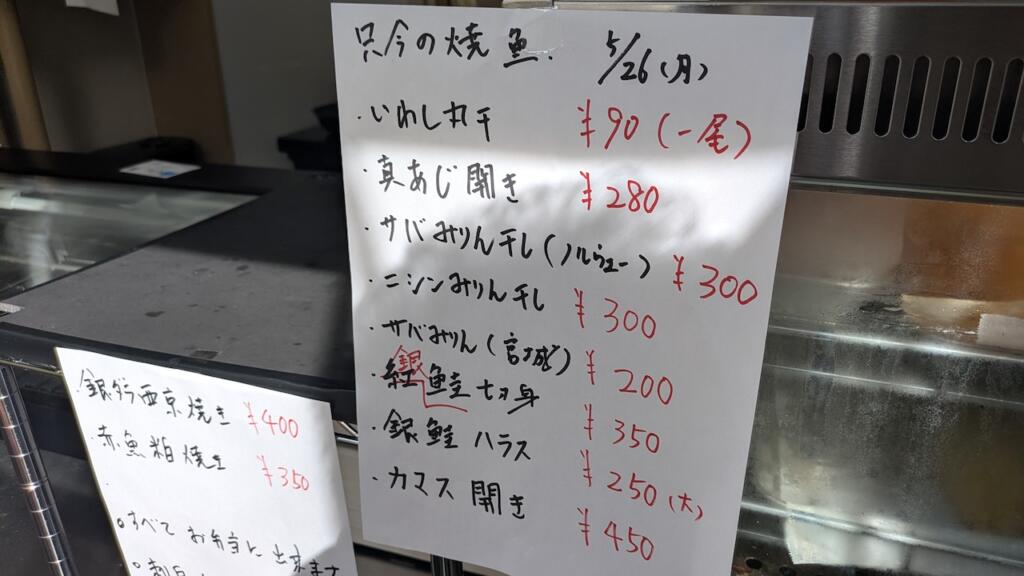 只今の焼魚. 5/26(月)
・いわし丸干 ¥90(一尾)
・真あじ開き ¥280
・サバみりん干し(ノルウェー) ¥300
・ニシンみりん干し ¥300
・サバみりん(宮城) ¥200
・銀鮭切身 ¥350
・銀鮭ハラス ¥250(大)
・カマス開き ¥450
銀ダラ西京焼き ¥400
・赤魚粕焼き ¥350
。すべてお弁当に出来ます